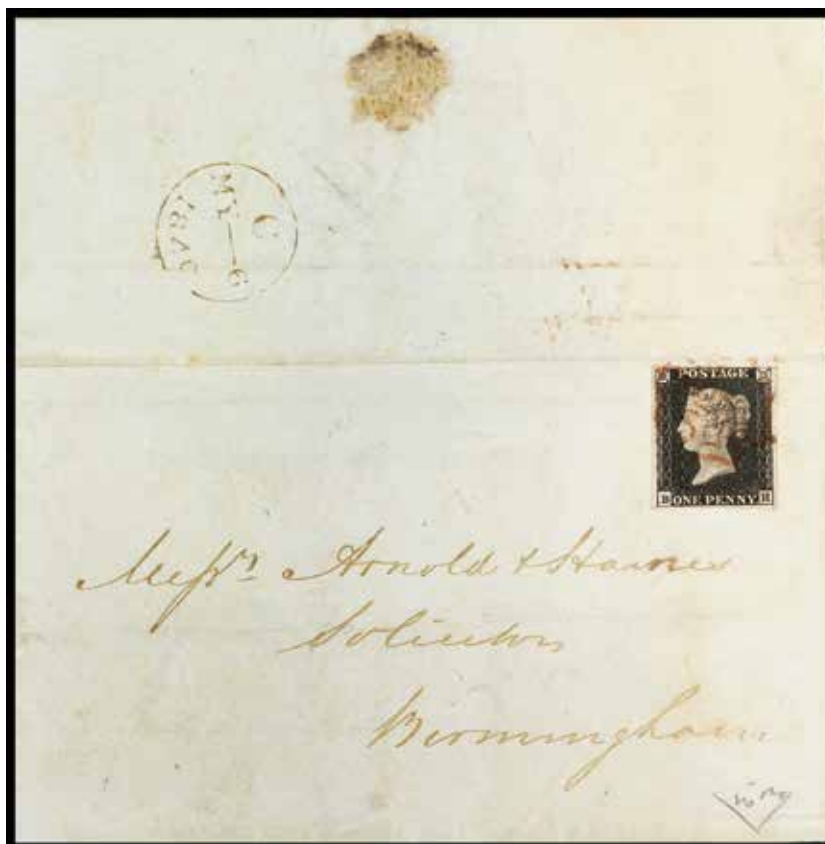 C
MY
6
POSTAGE
ONE PENNY
Messrs Arnold & Haines
Solicitors
Birmingham